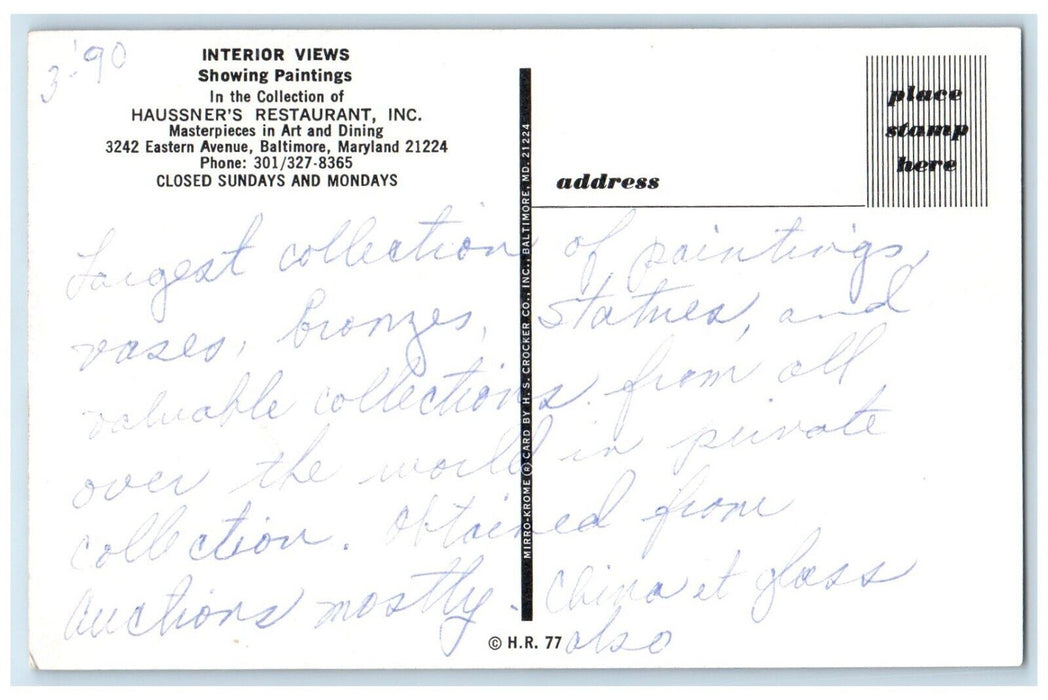 3-'90
INTERIOR VIEWS
Showing Paintings
In the Collection of
HAUSSNER'S RESTAURANT, INC.
Masterpieces in Art and Dining
3242 Eastern Avenue, Baltimore, Maryland 21224
Phone: 301/327-8365
CLOSED SUNDAYS AND MONDAYS
place
stamp
here
address
MIRRO-KROME® CARD BY H. S. CROCKER CO., INC., BALTIMORE, MD. 21224
Largest collection of paintings,
vases, bronzes, statues, and
valuable collections from all
over the world in private
collection. Obtained from
auctions mostly. China et glass
also
© H.R. 77